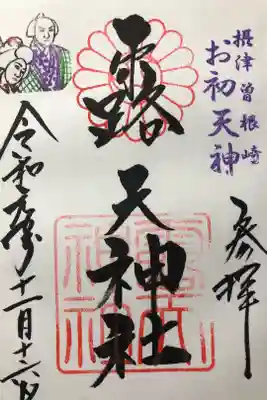 摂津曽根崎
お初天神
奉拝
露天神社
令和 十一月十六日